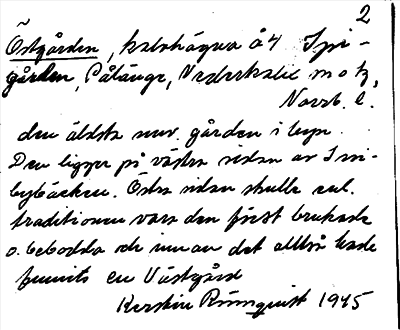 2
Östgården, halvhägna å 4 Smi-
gården, Pålänge, Nederkalix m o tg,
Norrb. l.
den äldsta nuv. gården i byn.
Den ligger på västra sidan av Smi-
bybäcken. Östra sidan skulle enl.
traditionen vara den först brukade
o. bebodda och innan det alltså hade
funnits en Västgård
Kerstin Rönnquist 1945